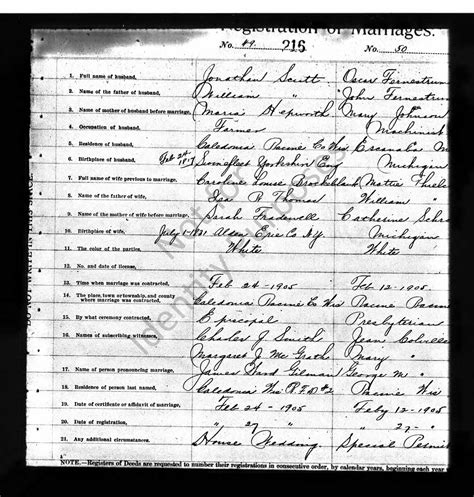 Registration of Marriages.
No. 49. 216 No. 50
1. Full name of husband, Jonathan Scutt Oscar Fernstrum
2. Name of the father of husband, William " John Fernstrum
3. Name of mother of husband before marriage, Maria Hepworth Mary Johnson
4. Occupation of husband, Farmer Machinist
5. Residence of husband, Caledonia Racine Co Wis Escanaba M
6. Birthplace of husband, Feb 24-1817 Yorkshire Eng Michigan
7. Full name of wife previous to marriage, Caroline Louise Brockelbank Mattie Thiele
8. Name of the father of wife, R Thomas William "
9. Name of the mother of wife before marriage, Sarah Tradewell Catherine Schr
10. Birthplace of wife, July 1-1831 Alden Erie Co N.Y. Michigan
11. The color of the parties, White White
12. No. and date of license,
13. Time when marriage was contracted, Feb 24-1905 Feb 12-1905
14. The place, town or township, and county where marriage was contracted, Caledonia Racine Co Wis Racine Racine
15. By what ceremony contracted, Episcopal Presbyterian
16. Names of subscribing witnesses, Charles J. Smith Jean Colville
Margaret J. Mc Grath Mary "
17. Name of person pronouncing marriage, James Thad Gilman George M "
18. Residence of person last named, Caledonia Wis R.F.D #2 Racine Wis
19. Date of certificate or affidavit of marriage, Feb 24-1905 Feby 12-1905
20. Date of registration, " 27 " " 27- "
21. Any additional circumstances. House Wedding. Special Permit
NOTE.—Registers of Deeds are requested to number their registrations in consecutive order, by calendar years, beginning each year